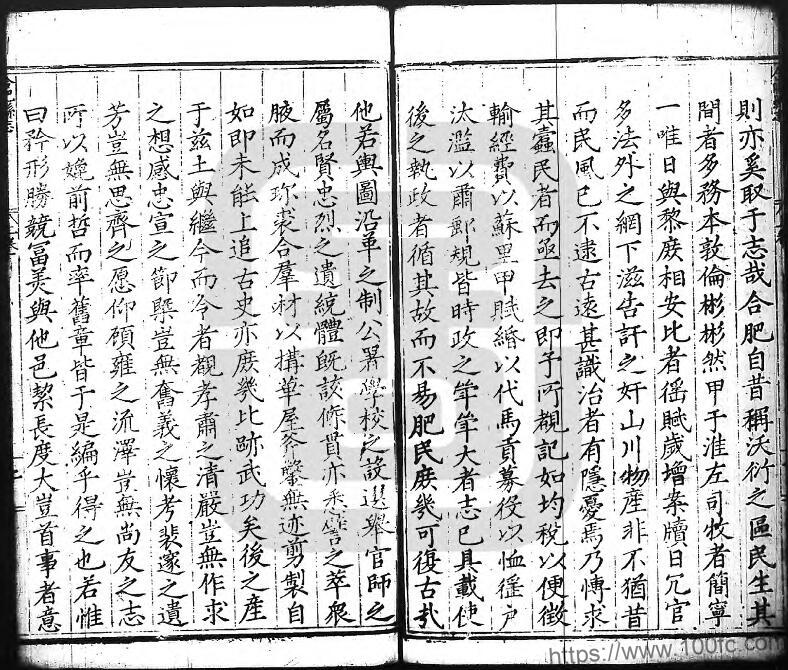 則亦奚取于志哉合肥自昔稱沃衍之區民生其
間者多務本敦倫彬彬然甲于淮左司牧者簡寧
一唯日與黎庶相安比者徭賦歲增案牘日冗官
多法外之網下滋告訐之奸山川物産非不猶昔
而民風已不逮古遠甚識治者有隱憂焉乃博求
其蠧民者而亟去之即予所覩記如均税以便徵
輸經費以蘇里甲賦緡以代馬貢募役以恤徭户
汰濫以肅郵規皆時政之犖犖大者志已具載使
後之執政者循其故而不易肥民庶幾可復古哉
他若輿圖沿革之制公署學校之設選舉官師之
屬名賢忠烈之遺統體旣該條貫亦悉譬之萃衆
腋而成珎裘合羣材以搆華屋斧鑿無迹剪製自
如即未能上追古史亦庶幾比跡武功矣後之産
于兹土與繼今而令者覩孝肅之清嚴豈無作求
之想感忠宣之節槩豈無奮義之懷考裴邃之遺
芳豈無思齊之愿仰頋雍之流澤豈無尚友之志
所以媲前哲而率舊章皆于是編乎得之也若惟
曰矜形勝競冨美與他邑絜長度大豈首事者意
https://www.100fc.com